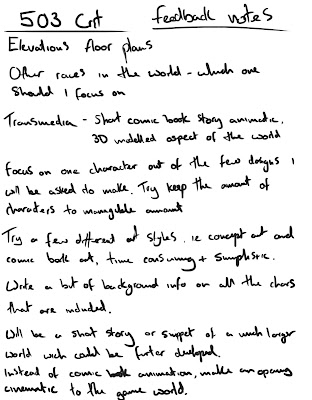 503 Crit feedback notes
Elevations floor plans
Other races in the world - which one
should I focus on
Transmedia - Short comic book story animatic.
3D modelled aspect of the world
Focus on one character out of the few designs I
will be asked to make. Try keep the amount of
characters to managable amount
Try a few different art styles. ie concept art and
comic book art, time consuming + simplistic.
Write a bit of background info on all the chars
that are included.
Will be a short story or snippet of a much larger
world wich could be further developed.
Instead of comic book animation, make an opening
cinematic to the game world.